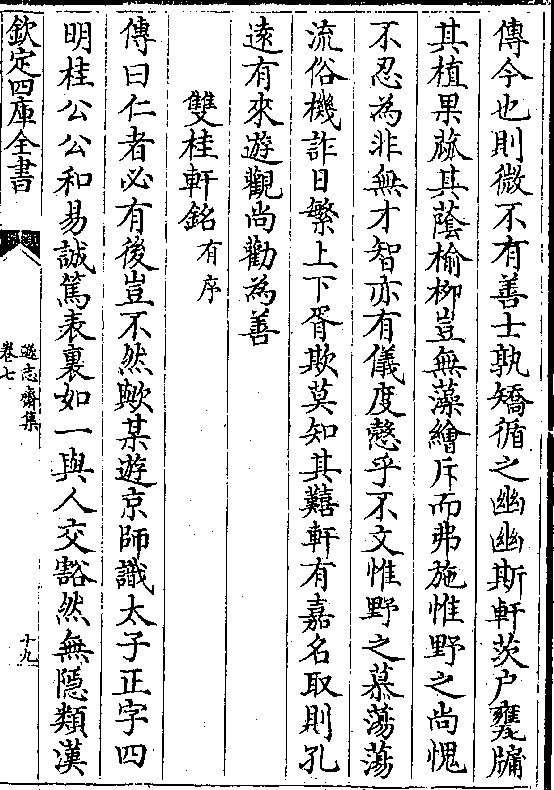 傳今也則微不有善士孰矯循之幽幽斯軒茨户甕牖
其植果蓏其蔭榆柳豈無藻繪斥而弗施惟野之尚愧
不忍為非無才智亦有儀度慤乎不文惟野之慕蕩蕩
流俗機詐日繁上下胥欺莫知其囏軒有嘉名取則孔
逺有來遊觀尚勸為善
雙桂軒銘有序
傳曰仁者必有後豈不然歟某遊京師識太子正字四
明桂公公和易誠篤表裏如一與人交豁然無隱類漢
欽定四庫全書
遜志齋集
卷七
十九